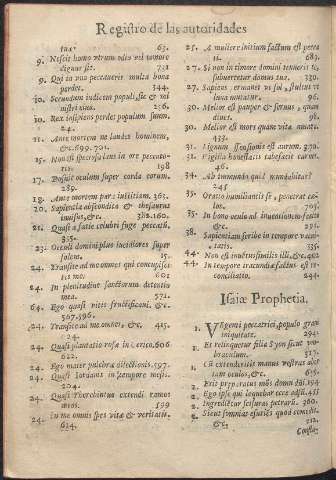 Registro de las autoridades
tur. 63.
9. Nescit homo vtrum odio vel amore
dignus sit. 721
9. Qui in vno peccauerit multa bona
perdet. 144.
10. Secundum iudicem populi, sic & mi
nistri eius. 256.
10. Rex insipiens perdet populum suum.
24.
11. Ante mortem ne laudes hominem,
&c. 699. 701.
15. Non est speciosa laus in ore peccato-
ris. 198
17. Posuit oculum super corda eorum.
289.
18. Ante mortem para iustitiam. 363.
20. Sapientia abscondita & thesaurus
inuisus, &c. 382. 160.
21. Quasi a facie colubri fuge peccata.
835.
23. Oculi domini plus lucidiores super
solem. 15.
24. Transite ad me omnes qui concupisci
tis me. 601
24. In plenitudine sanctorum detentio
mea. 571.
64. Ego quasi vitis fructificaui. &c.
567. 596.
24. Transite ad me omnes, &c. 415.
24.
24. Quasi plantatio rosæ in Ierico, 606
622.
24. Ego mater pulchræ dilectionis. 597.
24. Quasi Iordanis in tempore messis.
204.
24. Quasi Therebintus extendi ramos
meos. 599
24. In me omnis spes vitæ & veritatis.
624.
25. A muliere initium factum est pecca
ti. 683.
27. Si non in timore domini tenueris te,
subuertetur domus tua. 330.
27. Sapiens ermanet vt sol, stultus vt
luna mutatur. 96.
30. Melior est pauper & sanus, quam
diues. 98.
30. Melior est mors quam vita amara.
433.
31. Lignum offensionis est aurum. 370.
31. Vigilia honestatis tabefaciet carnes.
46.
34. Ab immundo quid mundabitur?
245
35. Oratio humiliantis se, penetrat cæ-
los. 705.
35. In bono oculo ad inuentiones facito
&c. 291.
38. Sapientiam scribe in tempore vacui-
tatis. 335.
44. Non est inuentus similis illi, &c. 402
44. In tempore iracundiæ factus est re-
conciliatio. 241.
Isaiæ Prophetia.
1. VAE genti peccatrici, populo graui
iniquitate. 294.
1. Et relinquetur filia Syon sicut vm-
braculum. 317.
1. Cũ extenderitis manus vestras auer
tam oculos, &c. 635.
2. Erit præparatus mõs domn dñi. 194
2. Ego ipse qui loquebar ecce adsũ. 455
2. Ingredietur scissuras petrarũ. 360.
2. Sicut somniat esuriẽs quod comedit.
&c. 212.
Confla-